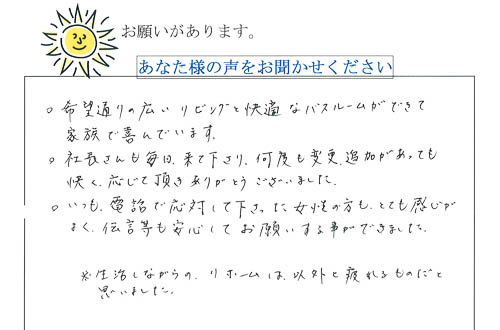 お願いがあります。
あなた様の声をお聞かせください
○ 希望通りの広いリビングと快適なバスルームができて
家族で喜んでいます。
○ 社長さんも毎日、来て下さり、何度も変更、追加があっても
快く、応じて頂きありがとうございました。
○ いつも、電話で応対して下さった女性の方も、とても感じが
よく、伝言等も安心してお願いする事ができました。
※生活しながらの、リホームは、以外と疲れるものだと
思いました。